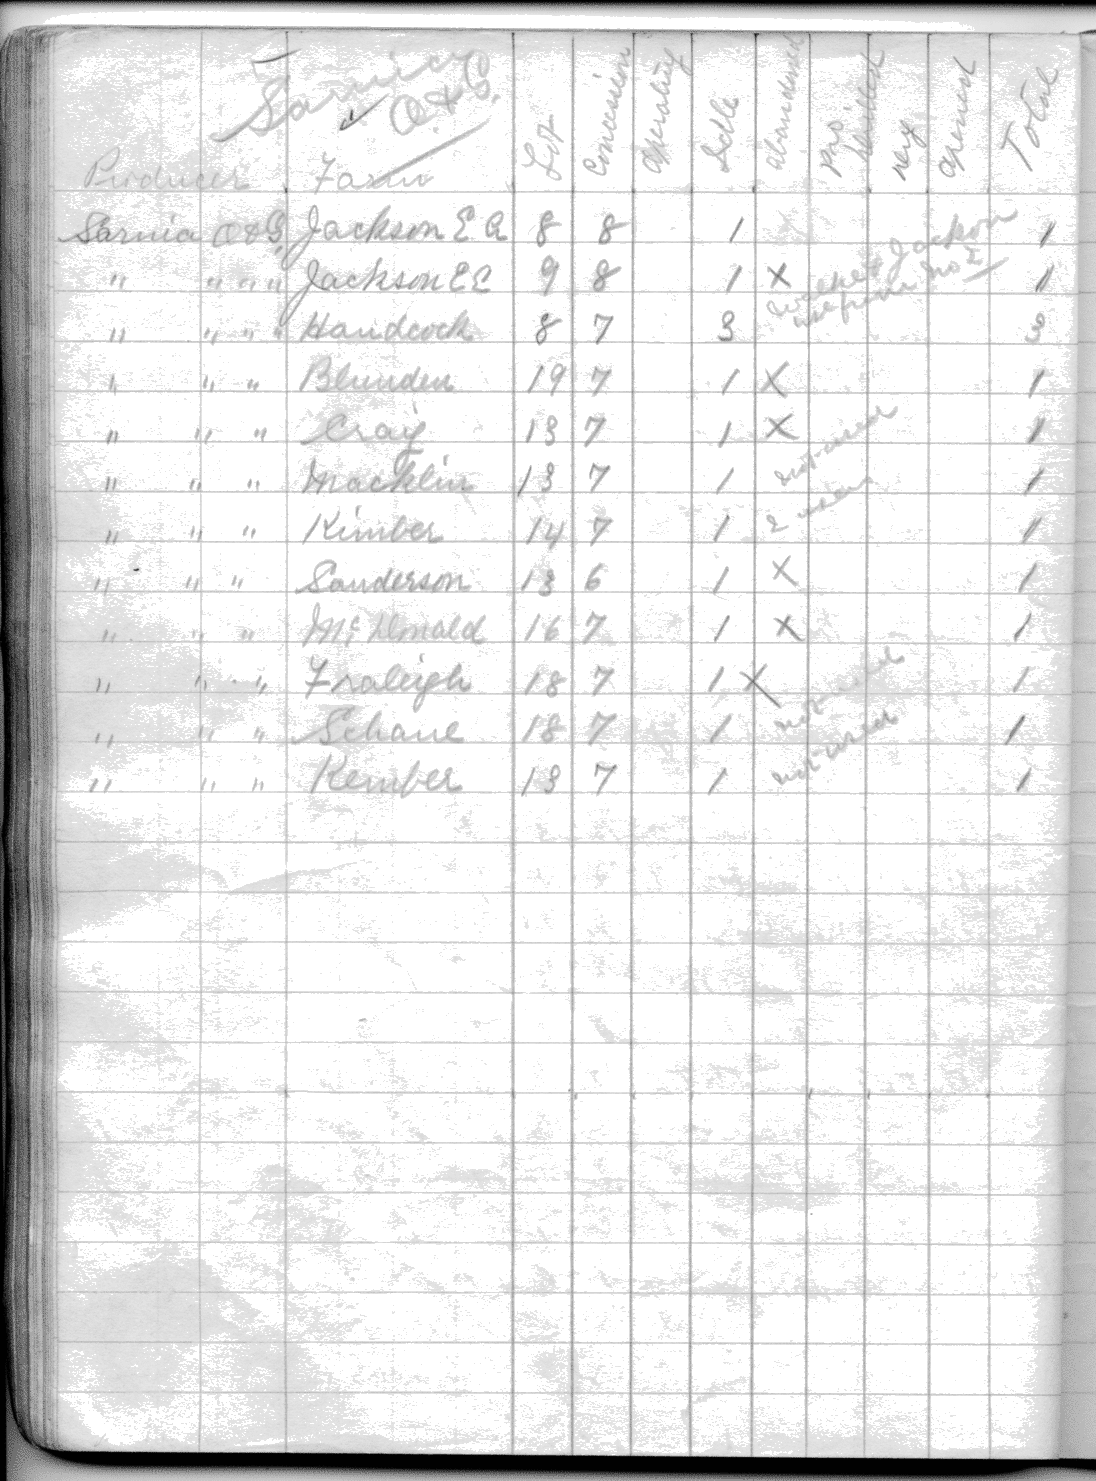 Sarnia
O & G.
Producer Farm Lot Concession Operating Idle abandoned Drilled Total
Sarnia O & G. Jackson E A 8 8 1 1
" " " " Jackson E E 9 8 1 X Jackson No 2 1
" " " " Handcock 8 7 3 3
" " " Blunden 19 7 1 X 1
" " " Craig 13 7 1 X 1
" " " Macklin 13 7 1 not used 1
" " " Kimber 14 7 1 2 1
" " " Sanderson 13 6 1 X 1
" " " McDonald 16 7 1 X 1
" " " Fraleigh 18 7 1 X 1
" " " Schane 18 7 1 not used 1
" " " Kember 13 7 1 not used 1